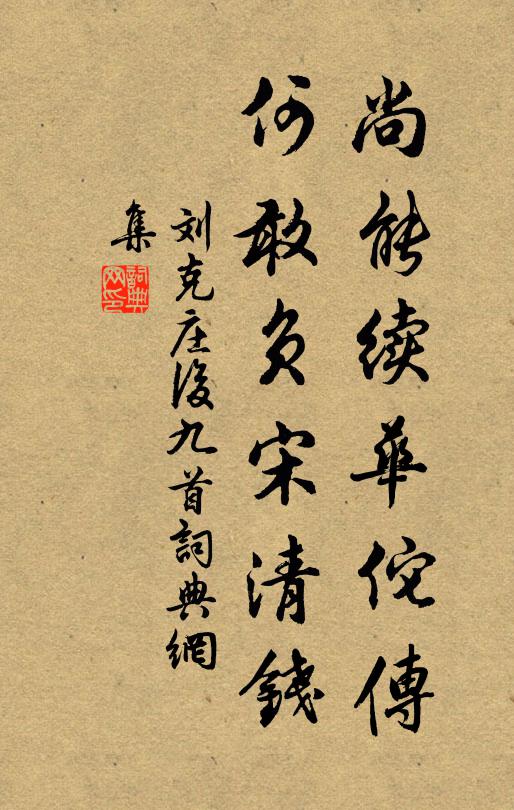 尚能续華佗傳
何敢负宋清錢
刘克庄後九首詞典網
集
詞典网印